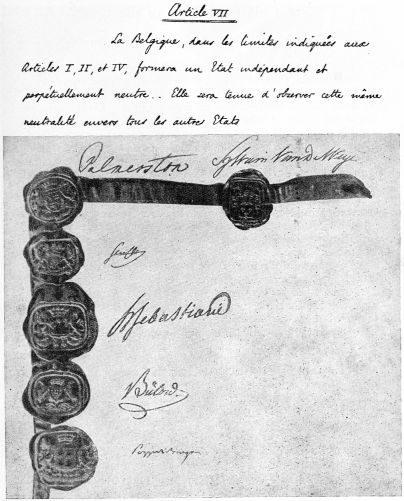 Article VII
La Belgique, dans les limites indiquées aux
Articles I, II, et IV, formera un Etat indépendant et
perpétuellement neutre.. Elle sera tenue d'observer cette même
neutralité envers tous les autres Etats
Palmerston Sylvain Van de Weyer
Senfft
H Sebastiani
Bülow
Pozzo di Borgo